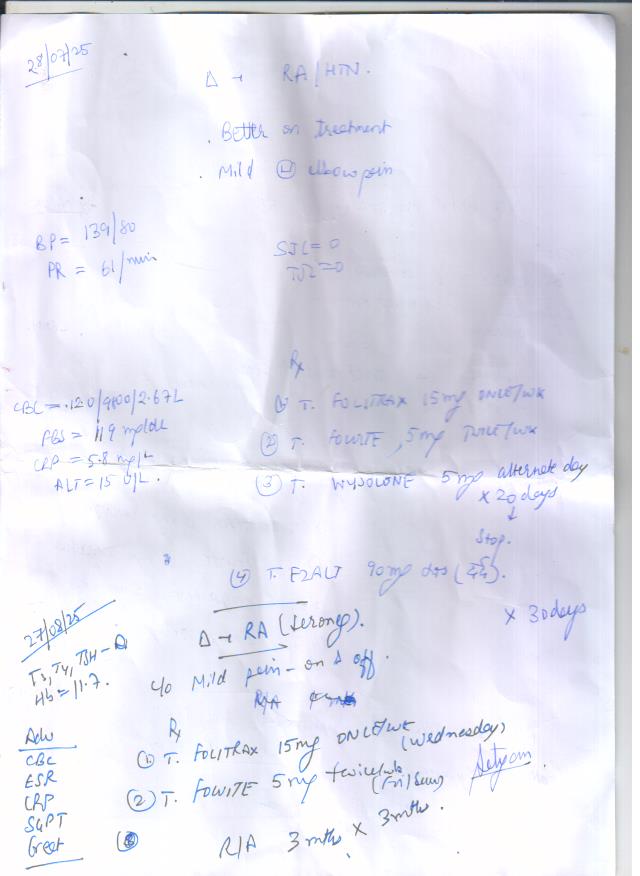 28/07/25
Δ → RA/HTN.
. Better on treatment
. Mild (H) elbow pain
BP = 139/80
PR = 61/min
SJC = 0
TJC = 0
Rx
CBC = 12.0/9800/2.67L
FBS = 119 mg/dl
CRP = 5.8 mg/L
ALT = 15 U/L.
① T. FOLITRAX 15mg ONCE/wk
② T. FOLVITE 5mg TWICE/wk
③ T. WYSOLONE 5mg alternate day
x 20 days
↓
Stop.
④ T. EZALT 90mg
x 30 days
27/08/25
T3, T4, TSH -
Hb = 11.7.
Δ → RA (seroneg).
c/o Mild pain - on & off.
R/A
Rx
① T. FOLITRAX 15mg ONCE/wk (Wednesday)
② T. FOLVITE 5mg twice/wk (Fri/Sun)
x 3 mths.
R/A 3 mths
Adv
CBC
ESR
CRP
SGPT
Creat